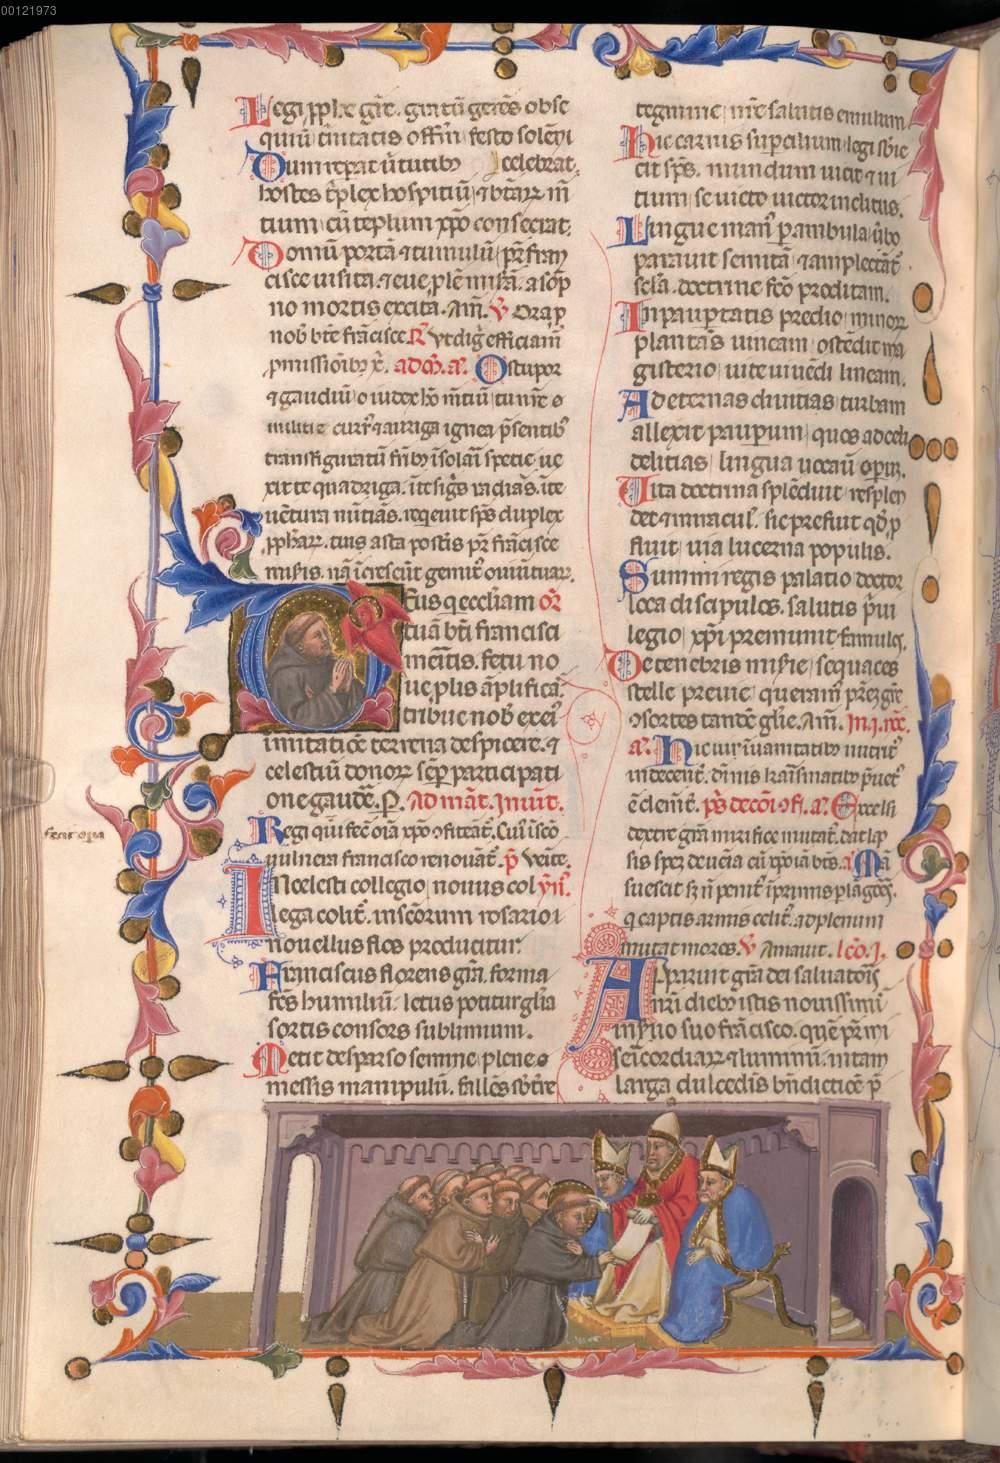 00121973
Legi pphe grē. gratū gerēs obse
quiū trinitatis offm festo solēni
Dum reperat ū tutibꝯ celebrat.
hostes triplex hospitiū ⁊ btarꝝ m̄
tium cū teplum xp̄o consecrat:
Domū portā ⁊ tumulū pr̄ fran
cisce uisita. ⁊ eue ple misā. a sōp
no mortis excita. Am̄. ꝟ Ora p
nob̄ bt̄e francisce. R̄ Vt dig efficiam̄
pmissiōibꝯ x̄. ad m̄. a. O stupor
⁊ gaudiū o iudex hō mtiū tu nr̄e o
militie curr ⁊ auriga ignea p̄sentibꝯ
transfiguratū fribꝯ ī solari specie ue
xit te quadriga. ī te sigs radiās. ī te
uētura nūtiās. reqeuit sp̄s duplex
pphar. tuis asta postis pr̄ francisce
miseris. nā īcrescūt gemitꝯ ouiū tuarꝝ.
Deus q eccl̄iam or̄
tuā bt̄i francisci
meritis. fetu no
ue plis āplificā.
tribue nob̄ ex ei
imitatiōe terrena despicere. ⁊
celestiū donoꝝ sēp participati
one gaudē. P. Ad mat. Inuit.
Regi qui fec̄ oīa xp̄o ꝯfiteāt. Cui ī scō
uulnera francisco renouāt. p̄ Venite.
IN celesti collegio nouus col ym̄.
lega colit̄. in scōrum rosario i
nouellus flos producitur.
Franciscus florens gr̄a. forma
fcs humiliū. letus potitur glīa
sortis consors sublimium.
Metit desparso semine plene o
messis manipulū. fallēs sbtīre
fecit oīa
tegmine nr̄e salutis emulum.
Hic carnis supcilium legi sbie
cit sp̄s. mundum uicit ⁊ ui
tium se uicto uictor inclitus.
Lingue man p ambula ubo
parauit semitā ⁊ amplectāt
sela. doctrine fco proditam.
In paupertatis predio minoꝝ
plantās uineam ostēdit ma
gisterio uite uiuēdi lineam.
Ad eternas diuitias turbam
allexit pauperum quos ad celi
delitias lingua uocaū operū.
Vita doctrina splēduit resplen
det ⁊ miracul̄. sic prefuit qd̄ p
fluit uia lucerna populis.
Summi regis palatio doctor
loca discipulos. salutis p̄ui
legio xp̄i premunit famulos.
De tenebris miserie sequaces
stelle preuie queram pr̄ ex gre
ꝯsortes tandē glīe. Am̄. In .j. nōc.
a. Hic uir ī uanitatibꝯ nutritꝯ
indecent̄. diuīs karismatibꝯ p̄uētꝯ
ē clement̄. p̄s de cōi ꝯf̄i. a. Excelsi
dextere gr̄a mirifice mutat̄. dat lap
sis spez de uēia cū xp̄o iā btūs. a. Mā
suescit sz n̄ penit̄ ī primis plagoꝝ.
q captis armis celit. ad plenum
mutat mores. ꝟ Amauit. leō. j.
Apparuit gr̄a dei saluatōis
nr̄i diebꝯ istis nouissimis
in suo suo frācisco. quē pr̄ mi
sericordiaꝝ ⁊ luminū. mtam
larga dulcedis bn̄dictiōe p̄